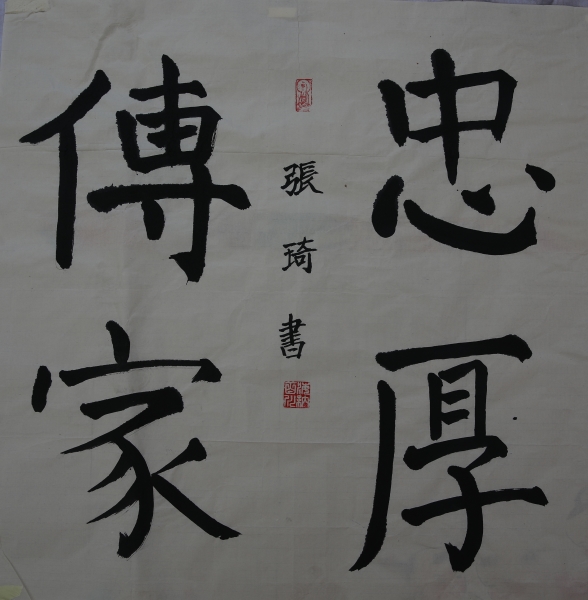 忠厚
傳家
張琦書